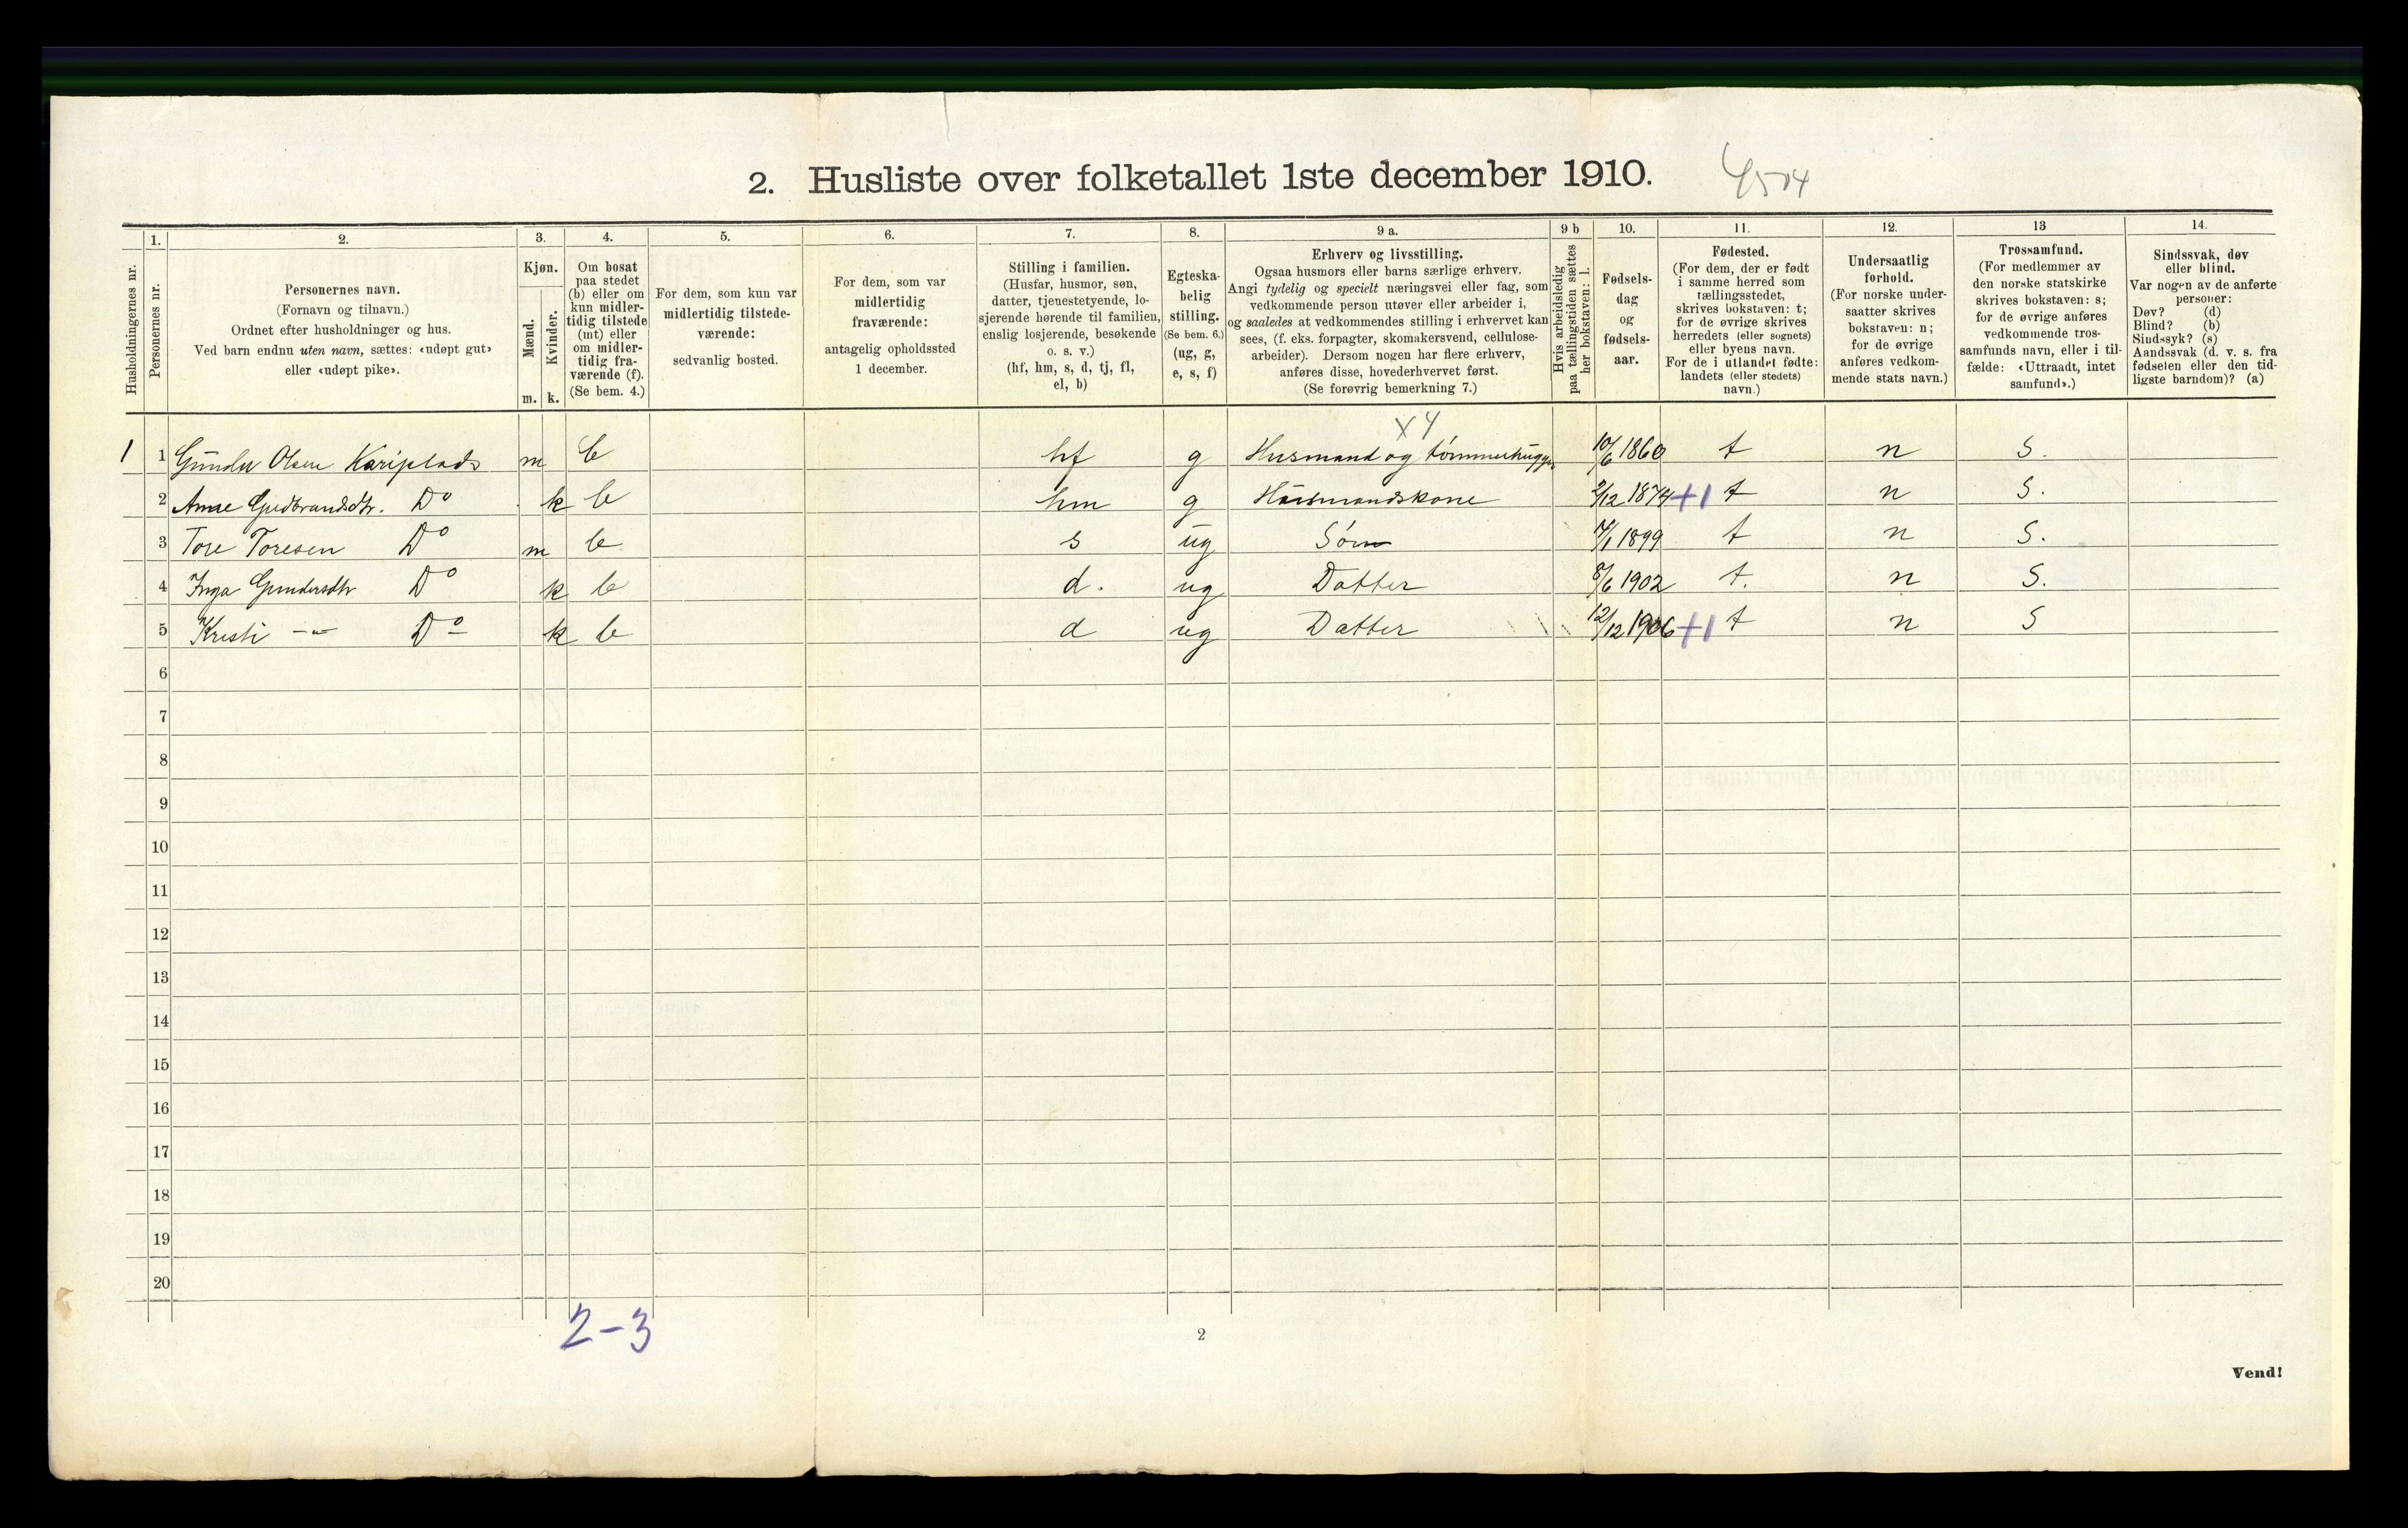 2. Husliste over folketallet 1ste december 1910.
Husholdningernes nr.
1.
Personernes nr.
2.
Personernes navn.
(Fornavn og tilnavn.)
Ordnet efter husholdninger og hus.
Ved barn endnu uten navn, sættes: «udøpt gut»
eller «udøpt pike».
3.
Kjøn.
Mænd.
Kvinder.
m. k.
4.
Om bosat
paa stedet
(b) eller om
kun midler-
tidig tilstede
(mt) eller
om midler-
tidig fra-
værende (f).
(Se bem. 4.)
5.
For dem, som kun var
midlertidig tilstede-
værende:
sedvanlig bosted.
6.
For dem, som var
midlertidig
fraværende:
antagelig opholdssted
1 december.
7.
Stilling i familien.
(Husfar, husmor, søn,
datter, tjenestetyende, lo-
sjerende hørende til familien,
enslig losjerende, besøkende
o. s. v.)
(hf, hm, s, d, tj, fl,
el, b)
8.
Egteska-
belig
stilling.
(Se bem. 6.)
(ug, g,
e, s, f)
9 a.
Erhverv og livsstilling.
Ogsaa husmors eller barns særlige erhverv.
Angi tydelig og specielt næringsvei eller fag, som
vedkommende person utøver eller arbeider i,
og saaledes at vedkommendes stilling i erhvervet kan
sees, (f. eks. forpagter, skomakersvend, cellulose-
arbeider). Dersom nogen har flere erhverv,
anføres disse, hovederhvervet først.
(Se forøvrig bemerkning 7.)
9 b
Hvis arbeidsledig
paa tællingstiden sættes
her bokstaven: l.
10.
Fødsels-
dag
og
fødsels-
aar.
11.
Fødested.
(For dem, der er født
i samme herred som
tællingsstedet,
skrives bokstaven: t;
for de øvrige skrives
herredets (eller sognets)
eller byens navn.
For de i utlandet fødte:
landets (eller stedets)
navn.)
12.
Undersaatlig
forhold.
(For norske under-
saatter skrives
bokstaven: n;
for de øvrige
anføres vedkom-
mende stats navn.)
13
Trossamfund.
(For medlemmer av
den norske statskirke
skrives bokstaven: s;
for de øvrige anføres
vedkommende tros-
samfunds navn, eller i til-
fælde: «Uttraadt, intet
samfund».)
14.
Sindssvak, døv
eller blind.
Var nogen av de anførte
personer:
Døv? (d)
Blind? (b)
Sindssyk? (s)
Aandssvak (d. v. s. fra
fødselen eller den tid-
ligste barndom)? (a)
x4
1 1 Gunder Olsen Kariplads m b hf g Husmand og tømmerhugger 10/6 1860 t n S.
2 Anne Gudbrandsdtr. Do k b hm g Husmandskone 2/12 1874 +1 t n S.
3 Tore Toresen Do m b s ug Søn 1899 t n S.
4 Inga Gundersdtr Do k b d. ug Datter 8/6 1902 t. n S.
5 Kresti -"- Do k b d ug Datter 12/12 1906 +1 t n S
6
7
8
9
10
11
12
13
14
15
16
17
18
19
20
2-3
2
Vend!